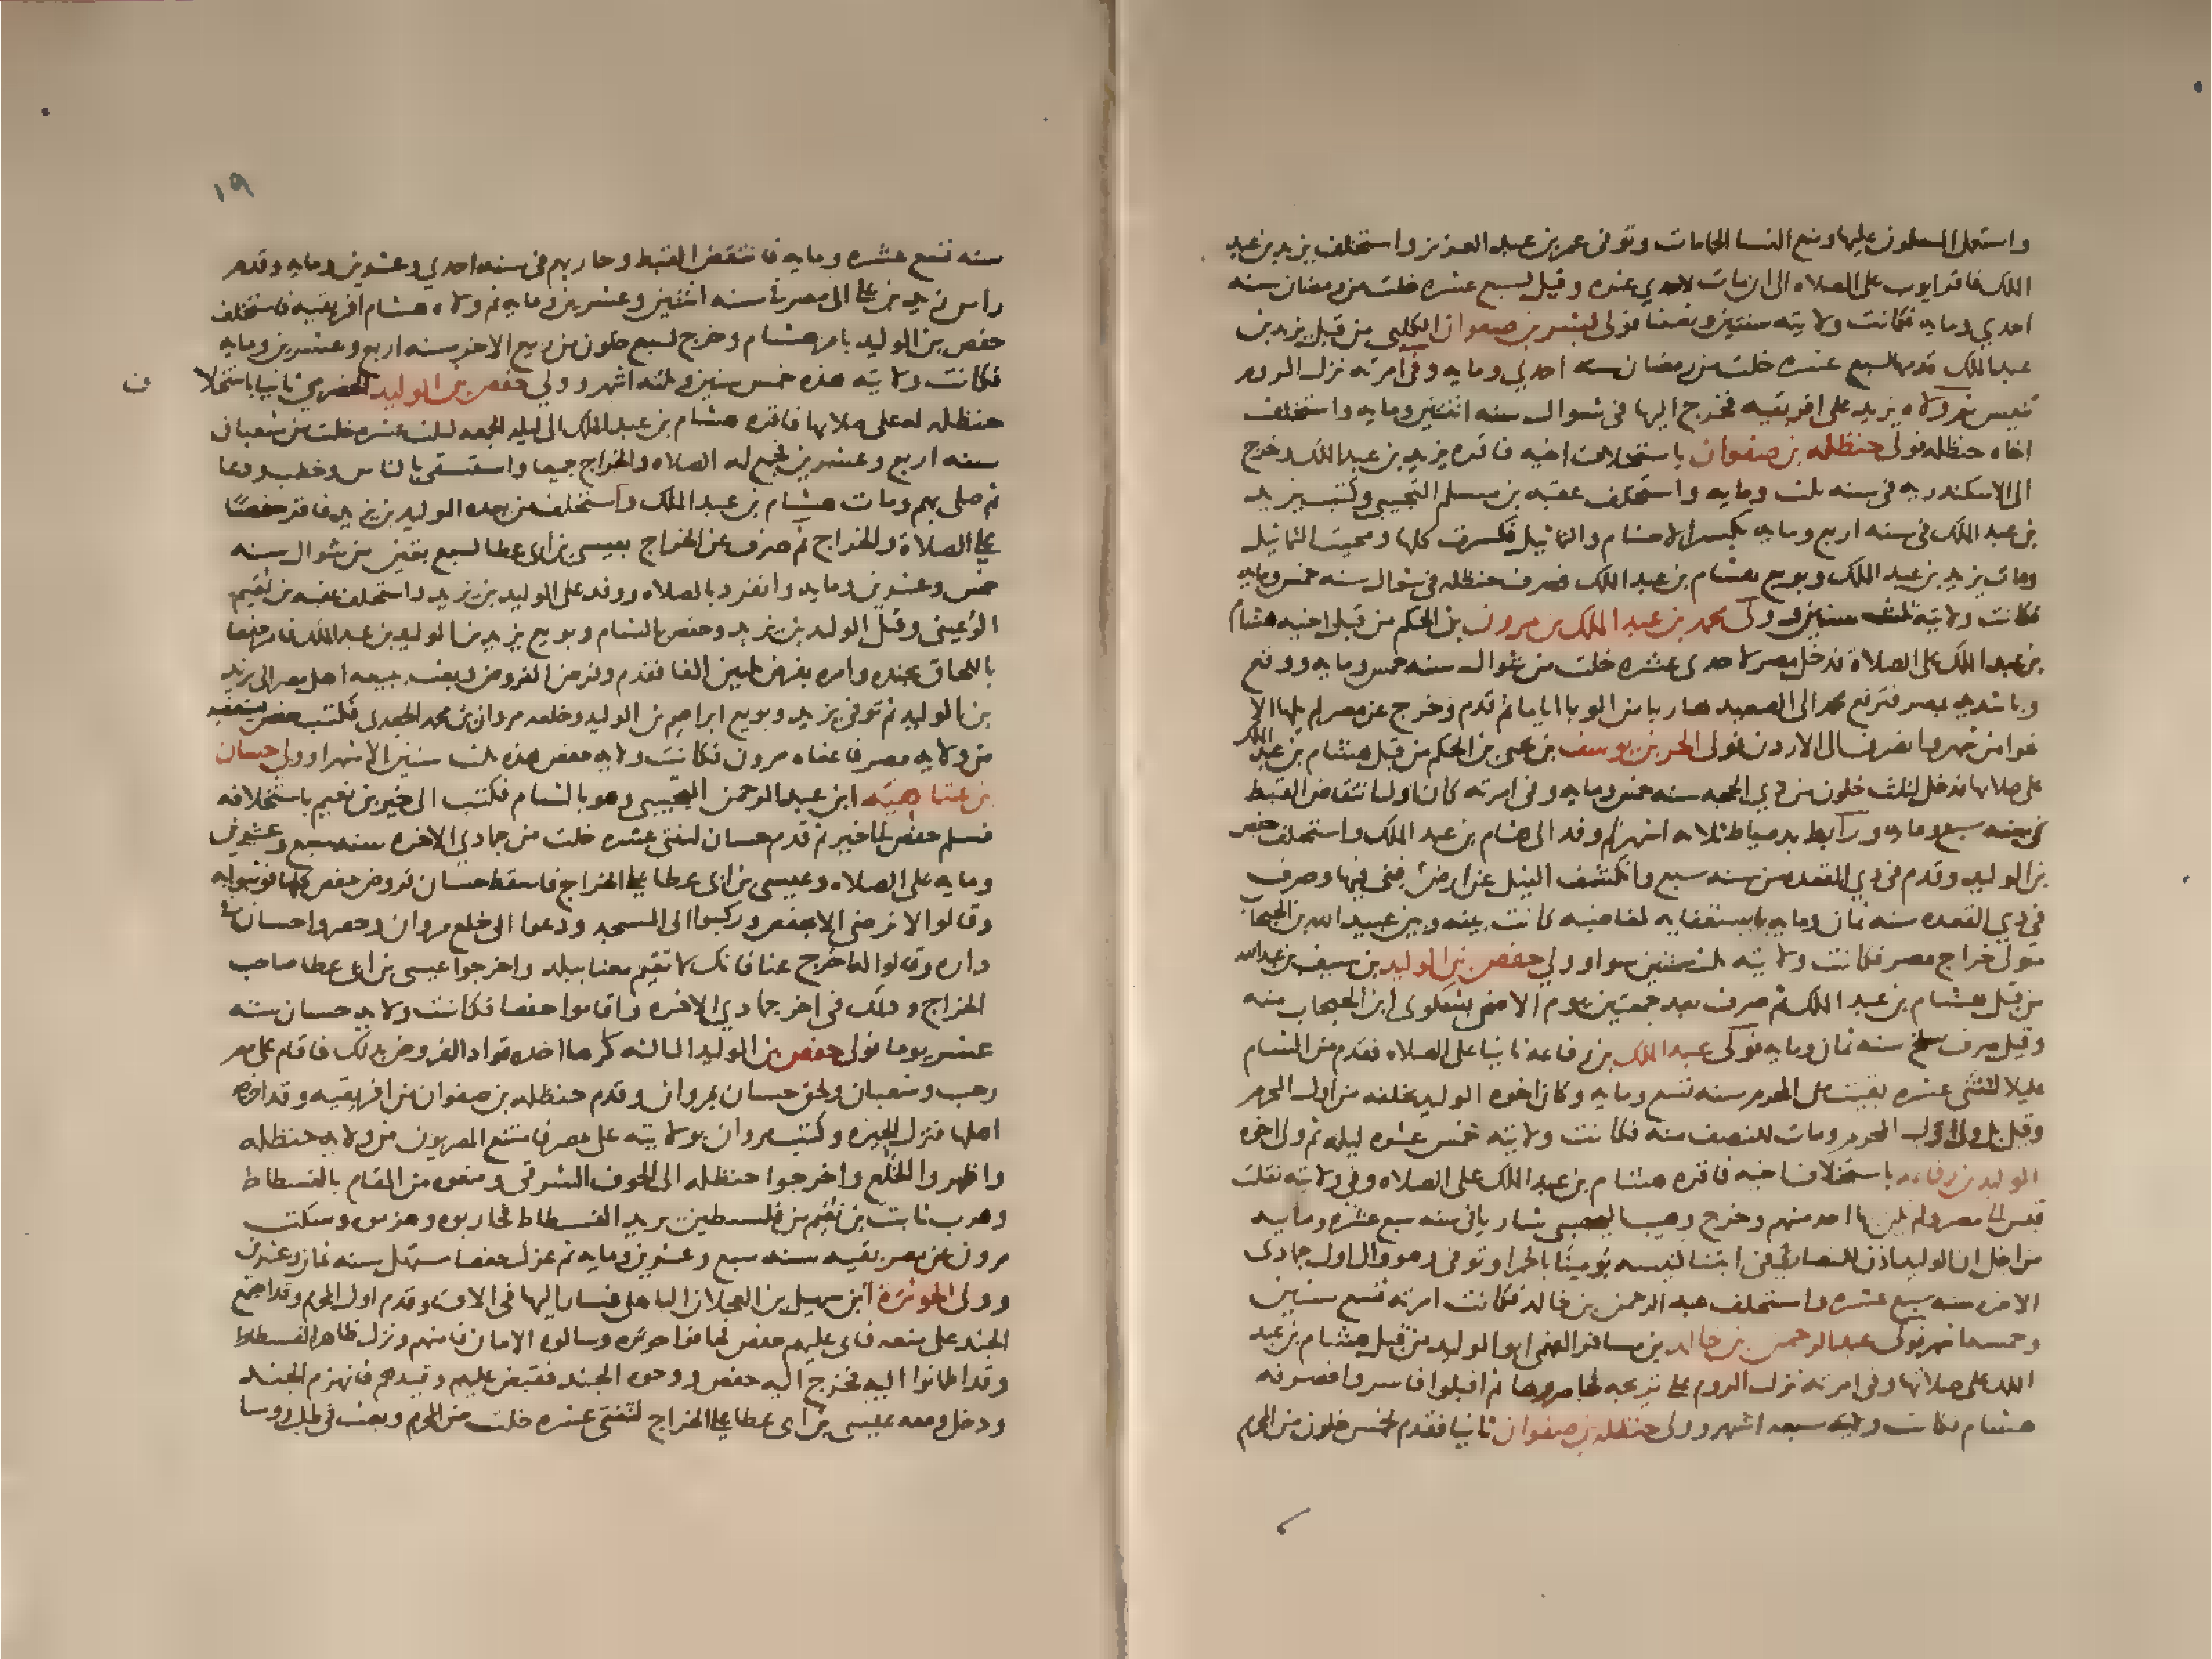 واستعمل المسلمون عليها ومنع النسا الحمامات وتوفى عمر بن عبد العزيز واستخلف يزيد بن عبد
الملك فاقر ايوب على الصلاه الى ان مات لاحدي عشره وقيل لسبع عشره خلت من رمضان سنه
احدي ومايه فكانت ولايته سنتين ونصفا فولى بشر بن صفوان الكلبي من قبل يزيد بن
عبد الملك قدمها لسبع عشره خلت من رمضان سنه احدي ومايه وفي امرته نزل الروم
تنيس ثم ولاه يزيد على افريقيه فخرج اليها في شوال سنه اثنتين ومايه واستخلف
اخاه حنظله فولى حنظله بن صفوان باستخلاف اخيه فاقره يزيد بن عبد الملك وخرج
الى الاسكندريه في سنه ثلث ومايه واستخلف عقبه بن مسلم التجيبي وكتب يزيد
بن عبد الملك في سنه اربع ومايه بكسر الاصنام والتماثيل فكسرت كلها ومحيت التماثيل
ومات يزيد بن عبد الملك وبويع هشام بن عبد الملك فصرف حنظله في شوال سنه خمس ومايه
فكانت ولايته ثلث سنين وولى محمد بن عبد الملك بن مرون بن الحكم من قبل اخيه هشام
بن عبد الملك على الصلاة فدخل مصر لاحدى عشره خلت من شوال سنه خمس ومايه ووقع
وبا شديد بمصر فترفع محمد الى الصعيد هاربا من الوبا اياما ثم قدم وخرج عن مصر لم يلها الا
نحوا من شهر وانصرف الى الاردن فولى الحر بن يوسف بن يحيى بن الحكم من قبل هشام بن عبد الملك
على صلاتها فدخل لثلث خلون من ذي الحجه سنه خمس ومايه وفي امرته كان اول انتقاض القبط
في سنه سبع ومايه ورابط بدمياط ثلاثه اشهر ثم وفد الى هشام بن عبد الملك واستخلف حفص
بن الوليد وقدم في ذي القعده من سنه سبع وانكشف النيل عن ارض فبنى فيها وصرف
في ذي القعده سنه ثمان ومايه باستعفايه لمغاضبه كانت بينه وبين عبيد الله بن الحبحاب
متولى خراج مصر فكانت ولايته ثلث سنين سوا وولي حفص بن الوليد بن سيف بن عبد الله
من قبل هشام بن عبد الملك ثم صرف بعد جمعتين يوم الاضحى بشكوى ابن الحبحاب منه
وقيل صرف سلخ سنه ثمان ومايه فولى عبد الملك بن رفاعه ثانيا على الصلاه فقدم من الشام
عليلا لثنتى عشره بقيت من المحرم سنه تسع ومايه وكان اخوه الوليد يخلفه من اول المحرم
وقيل بل ولى اول المحرم ومات للنصف منه فكانت ولايته خمس عشره ليله ثم ولى اخوه
الوليد بن رفاعه باستخلاف اخيه فاقره هشام بن عبد الملك على الصلاه وفي ولايته نقلت
قيس الى مصر ولم يكن بها احد منهم وخرج وهيب اليحصبي شاريا في سنه سبع عشره ومايه
من اجل ان الوليد اذن للنصارى في ابتنا كنيسه يوميثا بالحمرا وتوفى وهو وال اول جمادى
الاخره سنه سبع عشره واستخلف عبد الرحمن بن خالد فكانت امرته تسع سنين
وخمسه اشهر فولى عبد الرحمن بن خالد بن مسافر الفهمي ابو الوليد من قبل هشام بن عبد
الملك على صلاتها وفي امرته نزل الروم على تروجه فحاصروها ثم اقتتلوا فاسروا فصرفه
هشام فكانت ولايته سبعه اشهر وولى حنظله بن صفوان ثانيا فقدم لخمس خلون من المحرم
١٩
سنه تسع عشره ومايه فانتقض القبط وحاربهم في سنه احدي وعشرين ومايه وقدم
راس زيد بن على الى مصر في سنه اثنتين وعشرين ومايه ثم ولاه هشام افريقيه فاستخلف
حفص بن الوليد بامر هشام وخرج لسبع خلون من ربيع الاخر سنه اربع وعشرين ومايه
فكانت ولايته هذه خمس سنين وثلثه اشهر وولي حفص بن الوليد الحضرمي ثانيا باستخلا ف
حنظله له على صلاتها فاقره هشام بن عبد الملك الى ليله الجمعه لثلث عشره خلت من شعبان
سنه اربع وعشرين فجمع له الصلاه والخراج جميعا واستسقى بالناس وخطب ودعا
ثم صلى بهم ومات هشام بن عبد الملك واستخلف من بعده الوليد بن يزيد فاقر حفصا
على الصلاة والخراج ثم صرف عن الخراج بعيسى بن ابى عطا لسبع بقين من شوال سنه
خمس وعشرين ومايه وانفرد بالصلاه ووفد على الوليد بن يزيد واستخلف عقبه بن نعيم
الرعيني وقتل الوليد بن يزيد وحفص بالشام وبويع يزيد بن الوليد بن عبد الملك فامر حفصا
باللحاق بجنده وامره بفرض ثلثين الفا فقدم وفرض الفروض وبعث ببيعه اهل مصر الى يزيد
بن الوليد ثم توفى يزيد وبويع ابراهيم بن الوليد وخلعه مروان بن محمد الجعدي فكتب حفص يستعفيه
من ولايه مصر فاعفاه مرون فكانت ولايه حفص هذه ثلث سنين الا شهرا وولي حسان
بن عتاهيه ابن عبد الرحمن التجيبي وهو بالشام فكتب الى خير بن نعيم باستخلافه
فسلم حفص الى خير ثم قدم حسان لثنتى عشره خلت من جمادي الاخره سنه سبع وعشرين
ومايه على الصلاه وعيسى بن ابى عطا على الخراج فاسقط حسان فروض حفص كلها فوثبوا به
وقالوا لا نرضى الا بحفص وركبوا الى المسجد ودعوا الى خلع مروان وحصروا حسان في
داره وقالوا له اخرج عنا فانك لا تقيم معنا ببلد واخرجوا عيسى بن ابى عطا صاحب
الخراج وذلك في اخر جمادي الاخره واقاموا حفصا فكانت ولايه حسان سته
عشر يوما فولى حفص بن الوليد الثالثه كرها اخذه قواد الفروض بذلك فاقام على مصر
رجب وشعبان ولحق حسان بمروان وقدم حنظله بن صفوان من افريقيه وقد اخرجه
اهلها فنزل الجيزه وكتب مروان بولايته على مصر فامتنع المصريون من ولايه حنظله
واظهروا الخلع واخرجوا حنظله الى الحوف الشرقي ومنعوه من المقام بالفسطاط
وهرب ثابت بن نعيم من فلسطين يريد الفسطاط فحاربوه وهزموه وسكت
مرون عن مصر بقيه سنه سبع وعشرين ومايه ثم عزل حفصا مستهل سنه ثمان وعشرين
وولى الحوثره ابن سهيل بن العجلان الباهلي فسار اليها في الاف وقدم اول المحرم وقد اجتمع
الجند على منعه فابى عليهم حفص فخافوا حوثره وسالوه الامان فامنهم ونزل ظاهر الفسطاط
وقد اطمانوا اليه فخرج اليه حفص ووجوه الجند فقبض عليهم وقيدهم فانهزم الجند
ودخل ومعه عيسى بن ابى عطا على الخراج لثنتى عشره خلت من المحرم وبعث في طلب روسا